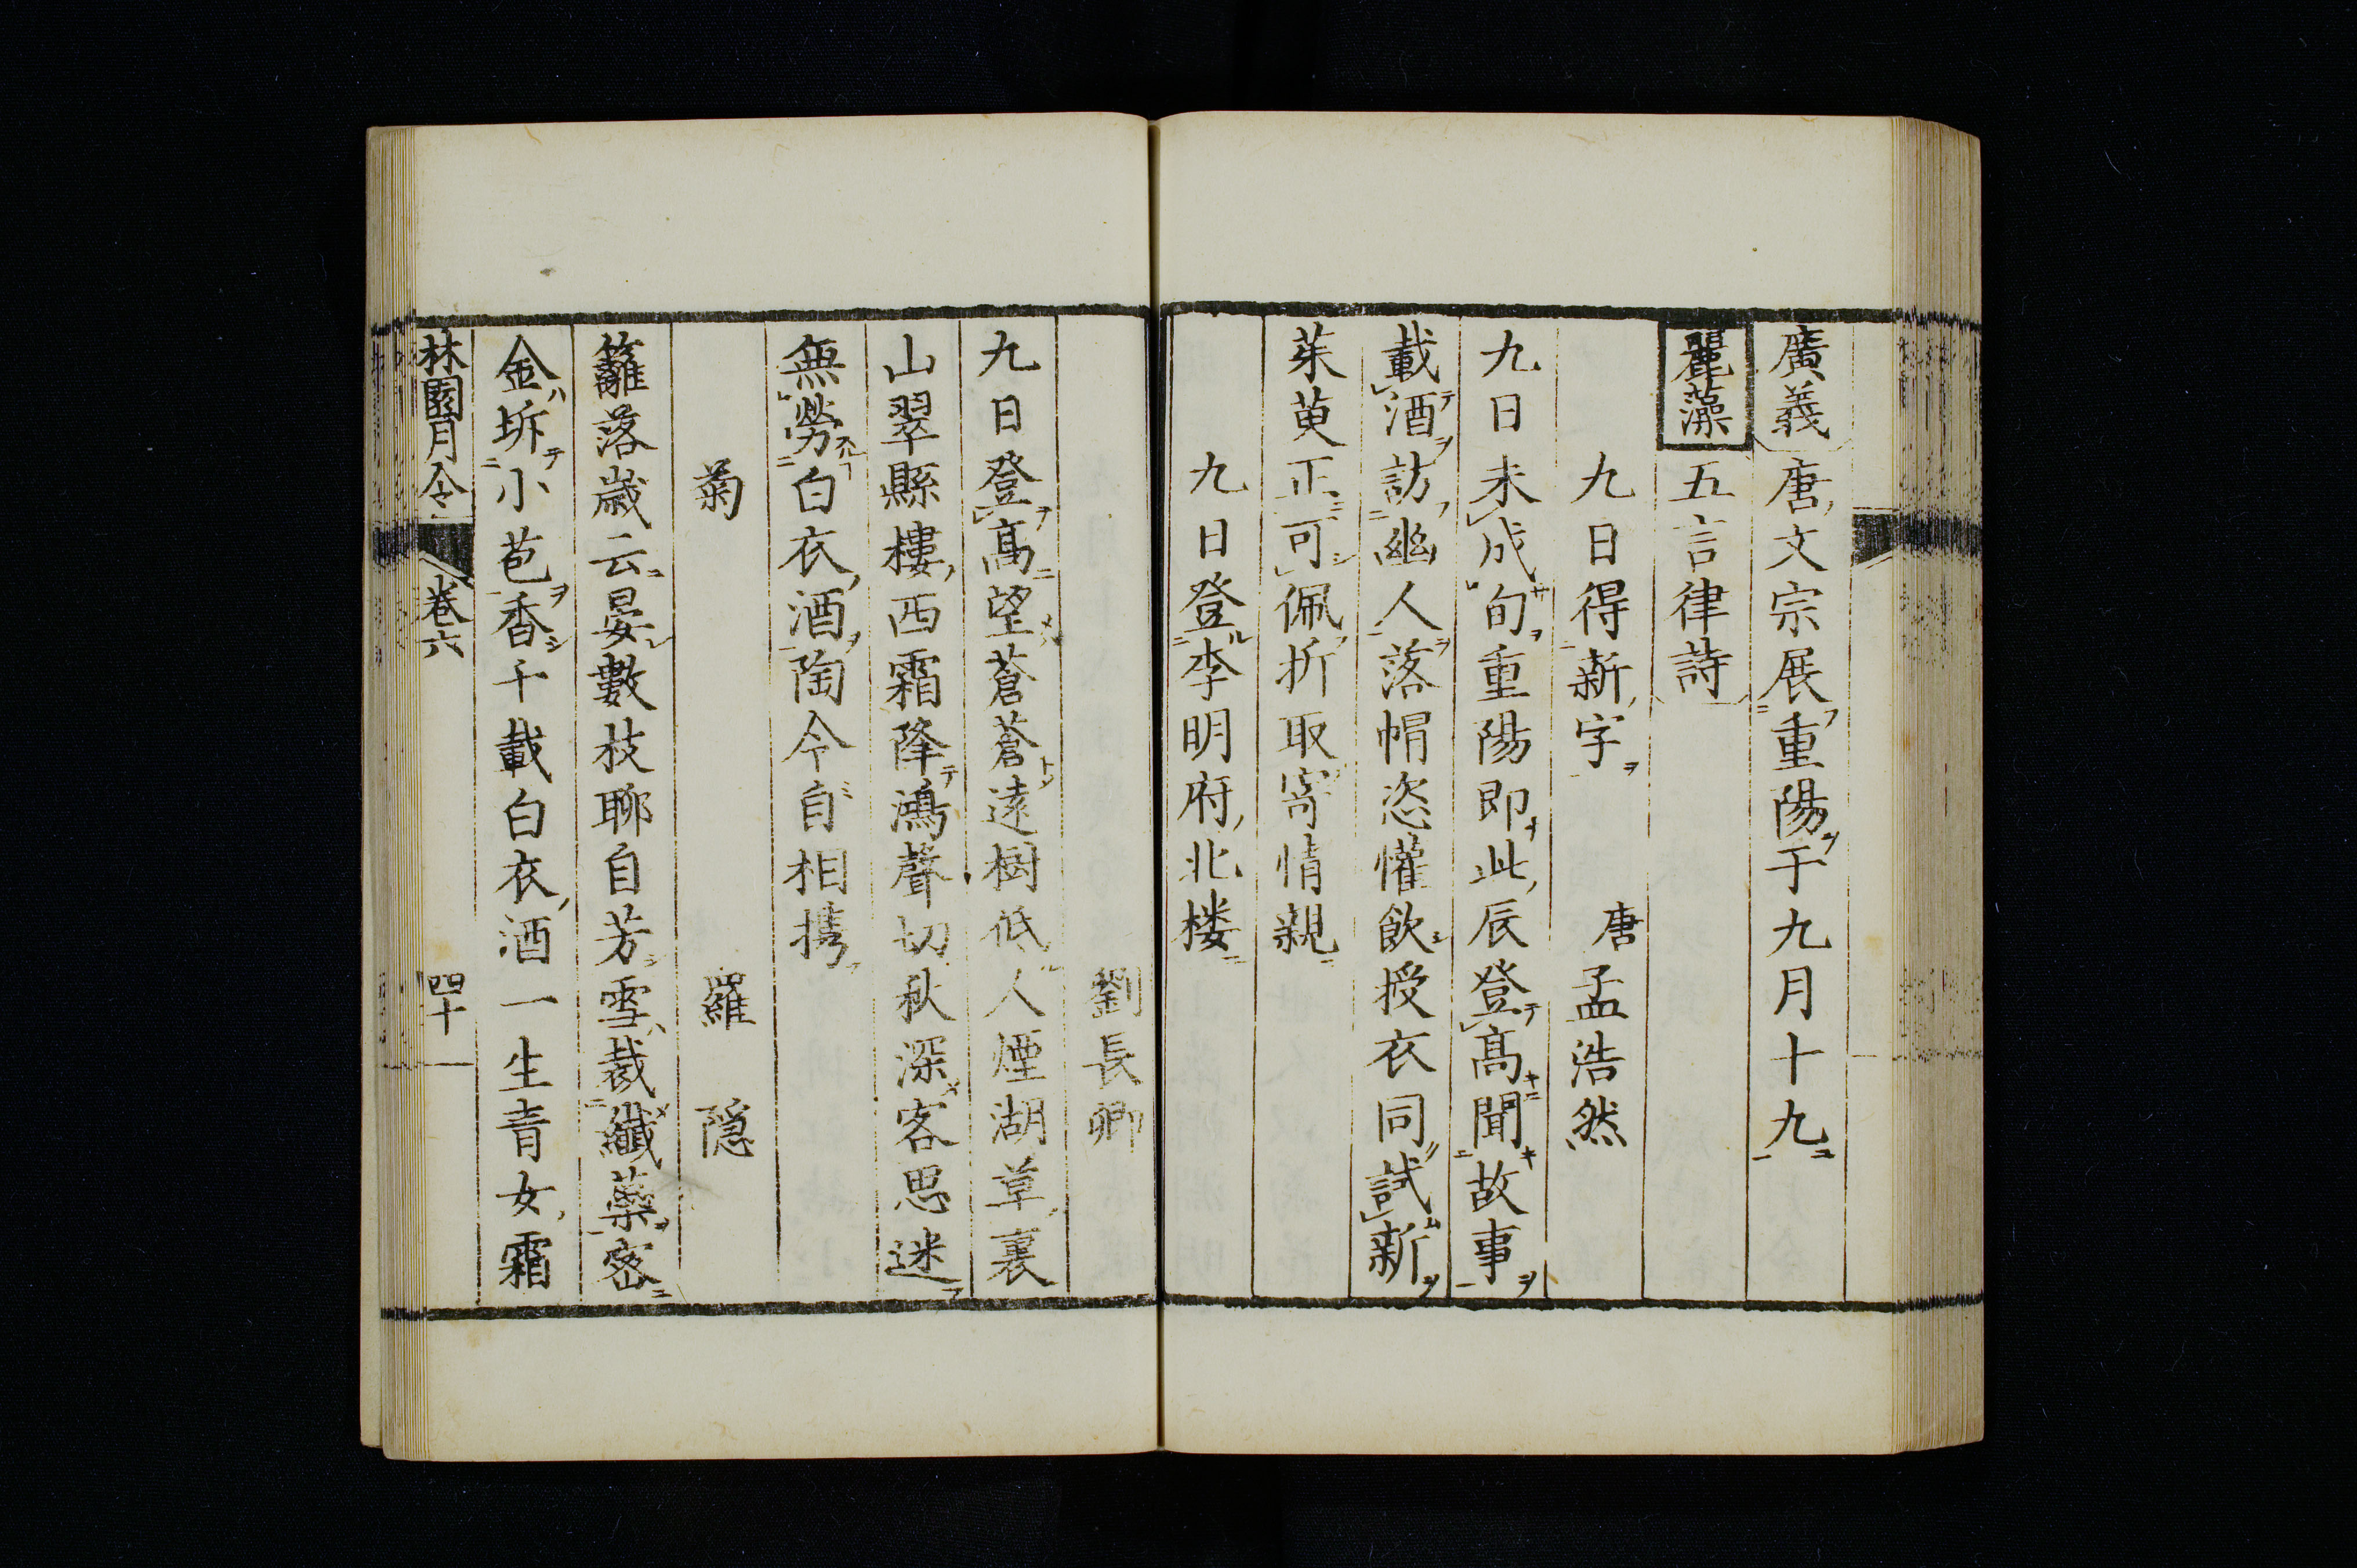 廣義 唐文宗展重陽于九月十九
麗藻 五言律詩
九日得新字 唐 孟浩然
九日未成旬重陽即此辰登髙聞故事
載酒訪幽人落帽恣懽飲授衣同試新
茱萸正可佩折取寄情親
九日登李明府北楼
劉長卿
九日登髙望蒼蒼遠樹低人煙湖草裏
山翠縣樓西霜降鴻聲切秋深客思迷
無勞白衣酒陶令自相携
菊 羅隱
籬落歲云晏數枝聊自芳雪裁纖蘂密
金坼小苞香千載白衣酒一生青女霜
林園月令 卷六 四十